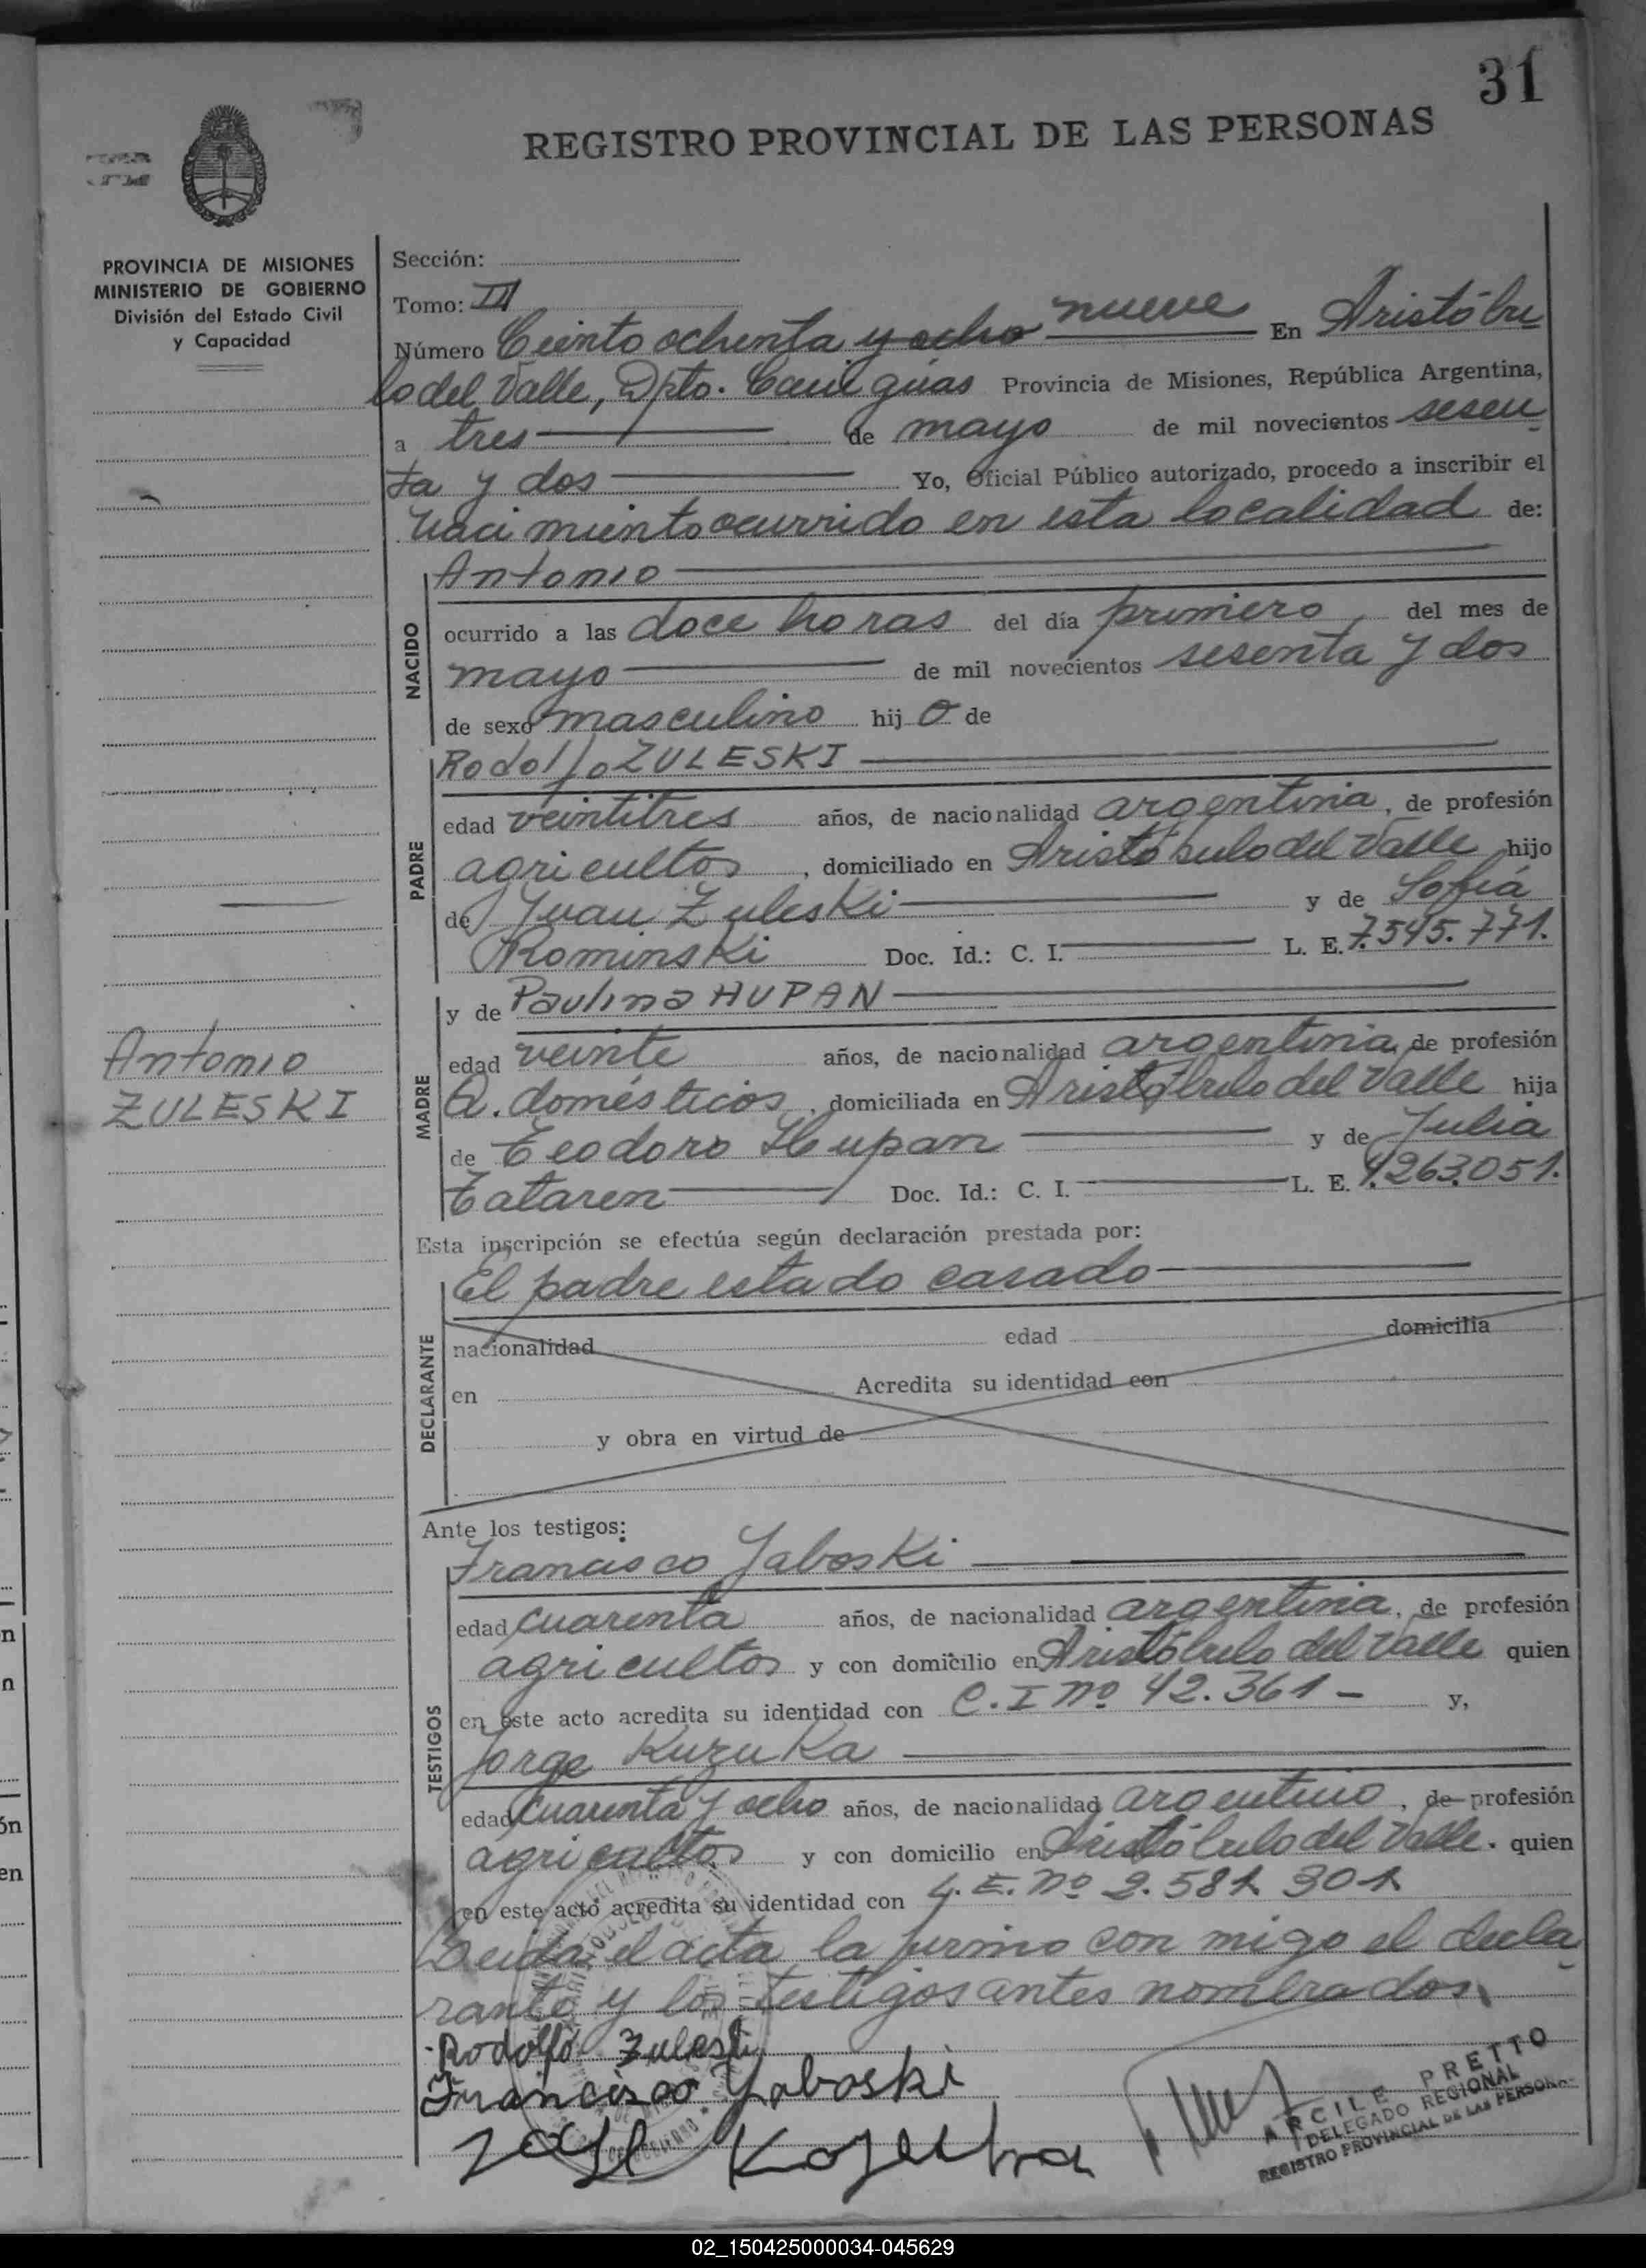 31
REGISTRO PROVINCIAL DE LAS PERSONAS
PROVINCIA DE MISIONES
MINISTERIO DE GOBIERNO
División del Estado Civil
y Capacidad
Sección:
Tomo: II
Número Ciento ochenta y ocho nueve En Aristóbu
lo del Valle, Dpto. Cainguas Provincia de Misiones, República Argentina,
a tres de mayo de mil novecientos sesen
ta y dos Yo, Oficial Público autorizado, procedo a inscribir el
Nacimiento ocurrido en esta localidad de:
NACIDO
Antonio
ocurrido a las doce horas del día primero del mes de
mayo de mil novecientos sesenta y dos
de sexo masculino hijo de
PADRE
Rodolfo ZULESKI
edad veintitres años, de nacionalidad argentina, de profesión
agricultor, domiciliado en Aristóbulo del Valle hijo
de Juan Zuleski y de Sofía
Rominski Doc. Id.: C. I. L. E. 7.545.771.
MADRE
y de Paulina HUPAN
edad veinte años, de nacionalidad argentina, de profesión
Q. domésticos, domiciliada en Aristóbulo del Valle hija
de Teodoro Hupan y de Julia
Tataren Doc. Id.: C. I. L. E. 4.263.051.
Antonio
ZULESKI
Esta inscripción se efectúa según declaración prestada por:
DECLARANTE
El padre estado casado
nacionalidad edad domicilia
en Acredita su identidad con
y obra en virtud de
Ante los testigos:
TESTIGOS
Francisco Jaboski
edad cuarenta años, de nacionalidad argentina, de profesión
agricultor y con domicilio en Aristóbulo del Valle quien
en este acto acredita su identidad con C.I. Nº 42.361 - y,
Jorge Kuzuka
edad cuarenta y ocho años, de nacionalidad argentino, de profesión
agricultor y con domicilio en Aristóbulo del Valle. quien
en este acto acredita su identidad con L.E. Nº 2.581 301
Leida el acta la firmo con migo el decla
rante y los testigos antes nombrados.
Rodolfo Zuleski
Francisco Yaboski
ARCILE PRETTO
DELEGADO REGIONAL
REGISTRO PROVINCIAL DE LAS PERSONAS
02_150425000034-045629